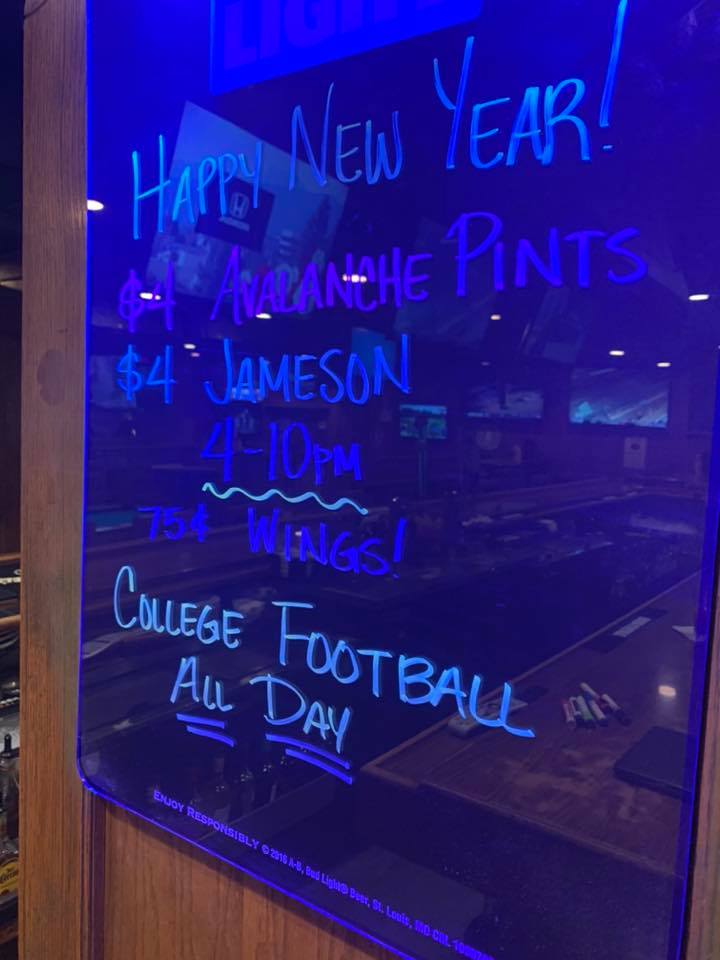 LIGHT
HAPPY NEW YEAR!
$4 AVALANCHE PINTS
$4 JAMESON
4-10PM
75¢ WINGS!
COLLEGE FOOTBALL
ALL DAY
ENJOY RESPONSIBLY © 2016 A-B, Bud Light® Beer, St. Louis, MO